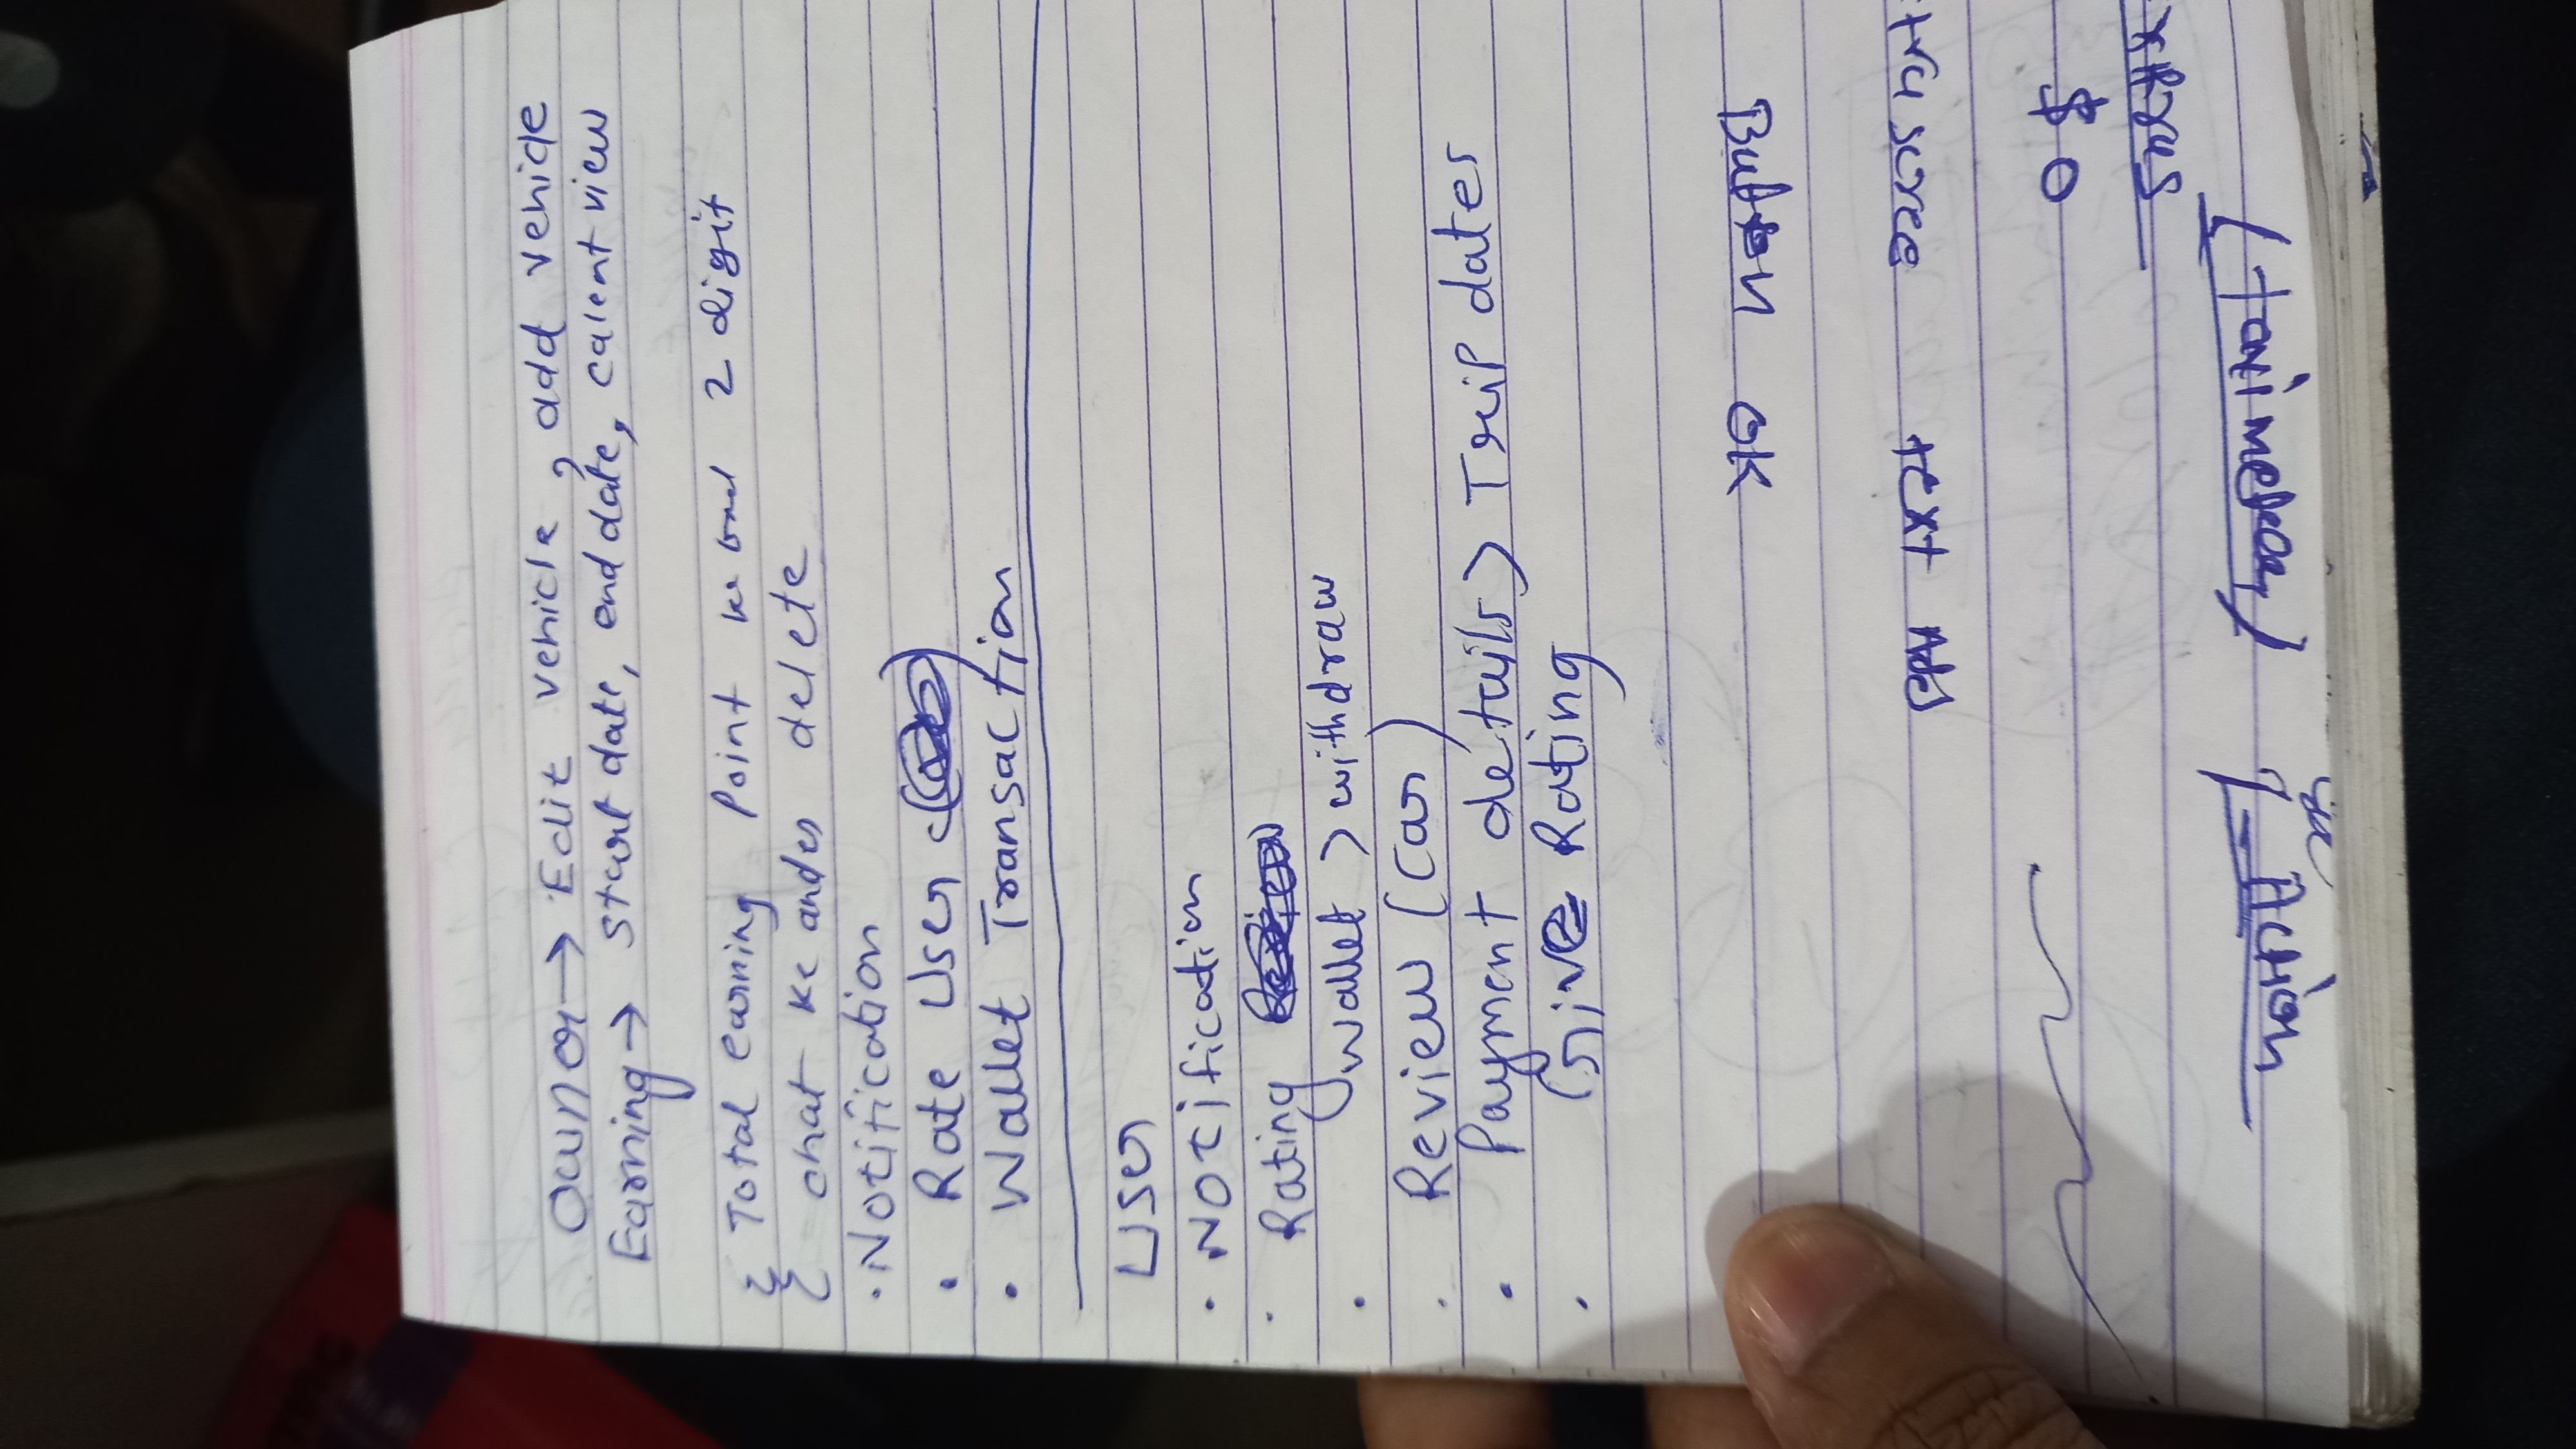 Owner → Edit vehicle, add vehicle
Earning → start date, end date, calient view
Total earning point ke baad 2 digit
chat ke ander delete
• Notification
• Rate User
• Wallet Transaction
User
• Notification
• Rating
• Wallet > withdraw
• Review (Car)
• Payment details > Trip dates
• Give Rating
Button
text
App
$ 0
Action